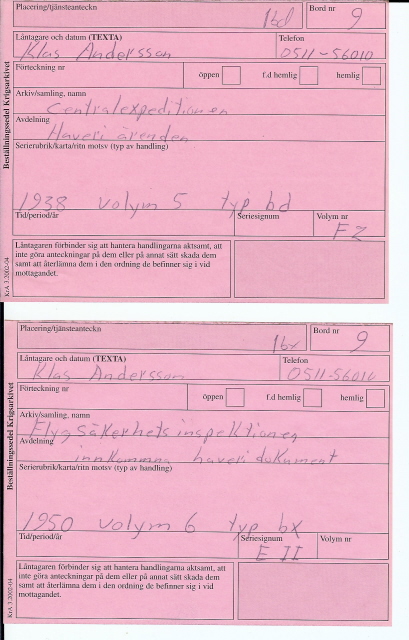 Placering/tjänsteanteckn
1bd
Bord nr
9
Låntagare och datum (TEXTA)
Klas Andersson
Telefon
0511-56010
Förteckning nr
öppen
f.d hemlig
hemlig
Arkiv/samling, namn
Centralexpeditionen
Avdelning
Haveri ärenden
Serierubrik/karta/ritn motsv (typ av handling)
1938 volym 5 typ bd
Tid/period/år
Seriesignum
Volym nr
FZ
Låntagaren förbinder sig att hantera handlingarna aktsamt, att
inte göra anteckningar på dem eller på annat sätt skada dem
samt att återlämna dem i den ordning de befinner sig i vid
mottagandet.
Beställningssedel Krigsarkivet
KrA 3:2002-04
Placering/tjänsteanteckn
1bx
Bord nr
9
Låntagare och datum (TEXTA)
Klas Andersson
Telefon
0511-56010
Förteckning nr
öppen
f.d hemlig
hemlig
Arkiv/samling, namn
Flygsäkerhetsinspektionen
Avdelning
innkommna haveridokument
Serierubrik/karta/ritn motsv (typ av handling)
1950 volym 6 typ bx
Tid/period/år
Seriesignum
E II
Volym nr
Låntagaren förbinder sig att hantera handlingarna aktsamt, att
inte göra anteckningar på dem eller på annat sätt skada dem
samt att återlämna dem i den ordning de befinner sig i vid
mottagandet.
Beställningssedel Krigsarkivet
KrA 3:2002-04